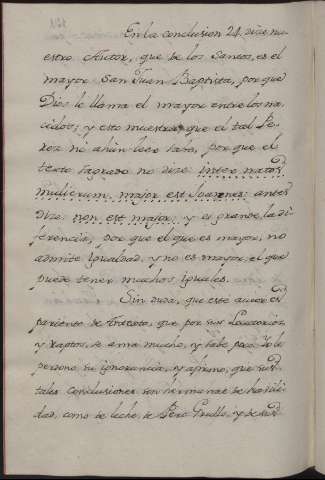 En la conclusion 24. dize nu-
estro Autor, que de los Santos, es el
mayor San Juan Baptista, porque
Dios le llama el mayor entre los na-
cidos; y esto muestra que el tal Pe-
ni aùn leer sabe, por que el
texto sagrado no dize inter natos
mulierum, major est Joannes: antes
dize non est major, y es grande la di-
ferencia; por que el que es mayor, no
admite igualdad, y no es mayor, el que
puede tener muchos iguales.
Sin duda, que este autor es
pariente de que por sus
y raptos, se ama mucho, y sabe poco
persono su ignorancia, y afirmo, que sus
tales conclusiones son hermanas de
dad, como de leche, de Pero Grullo, y de sus